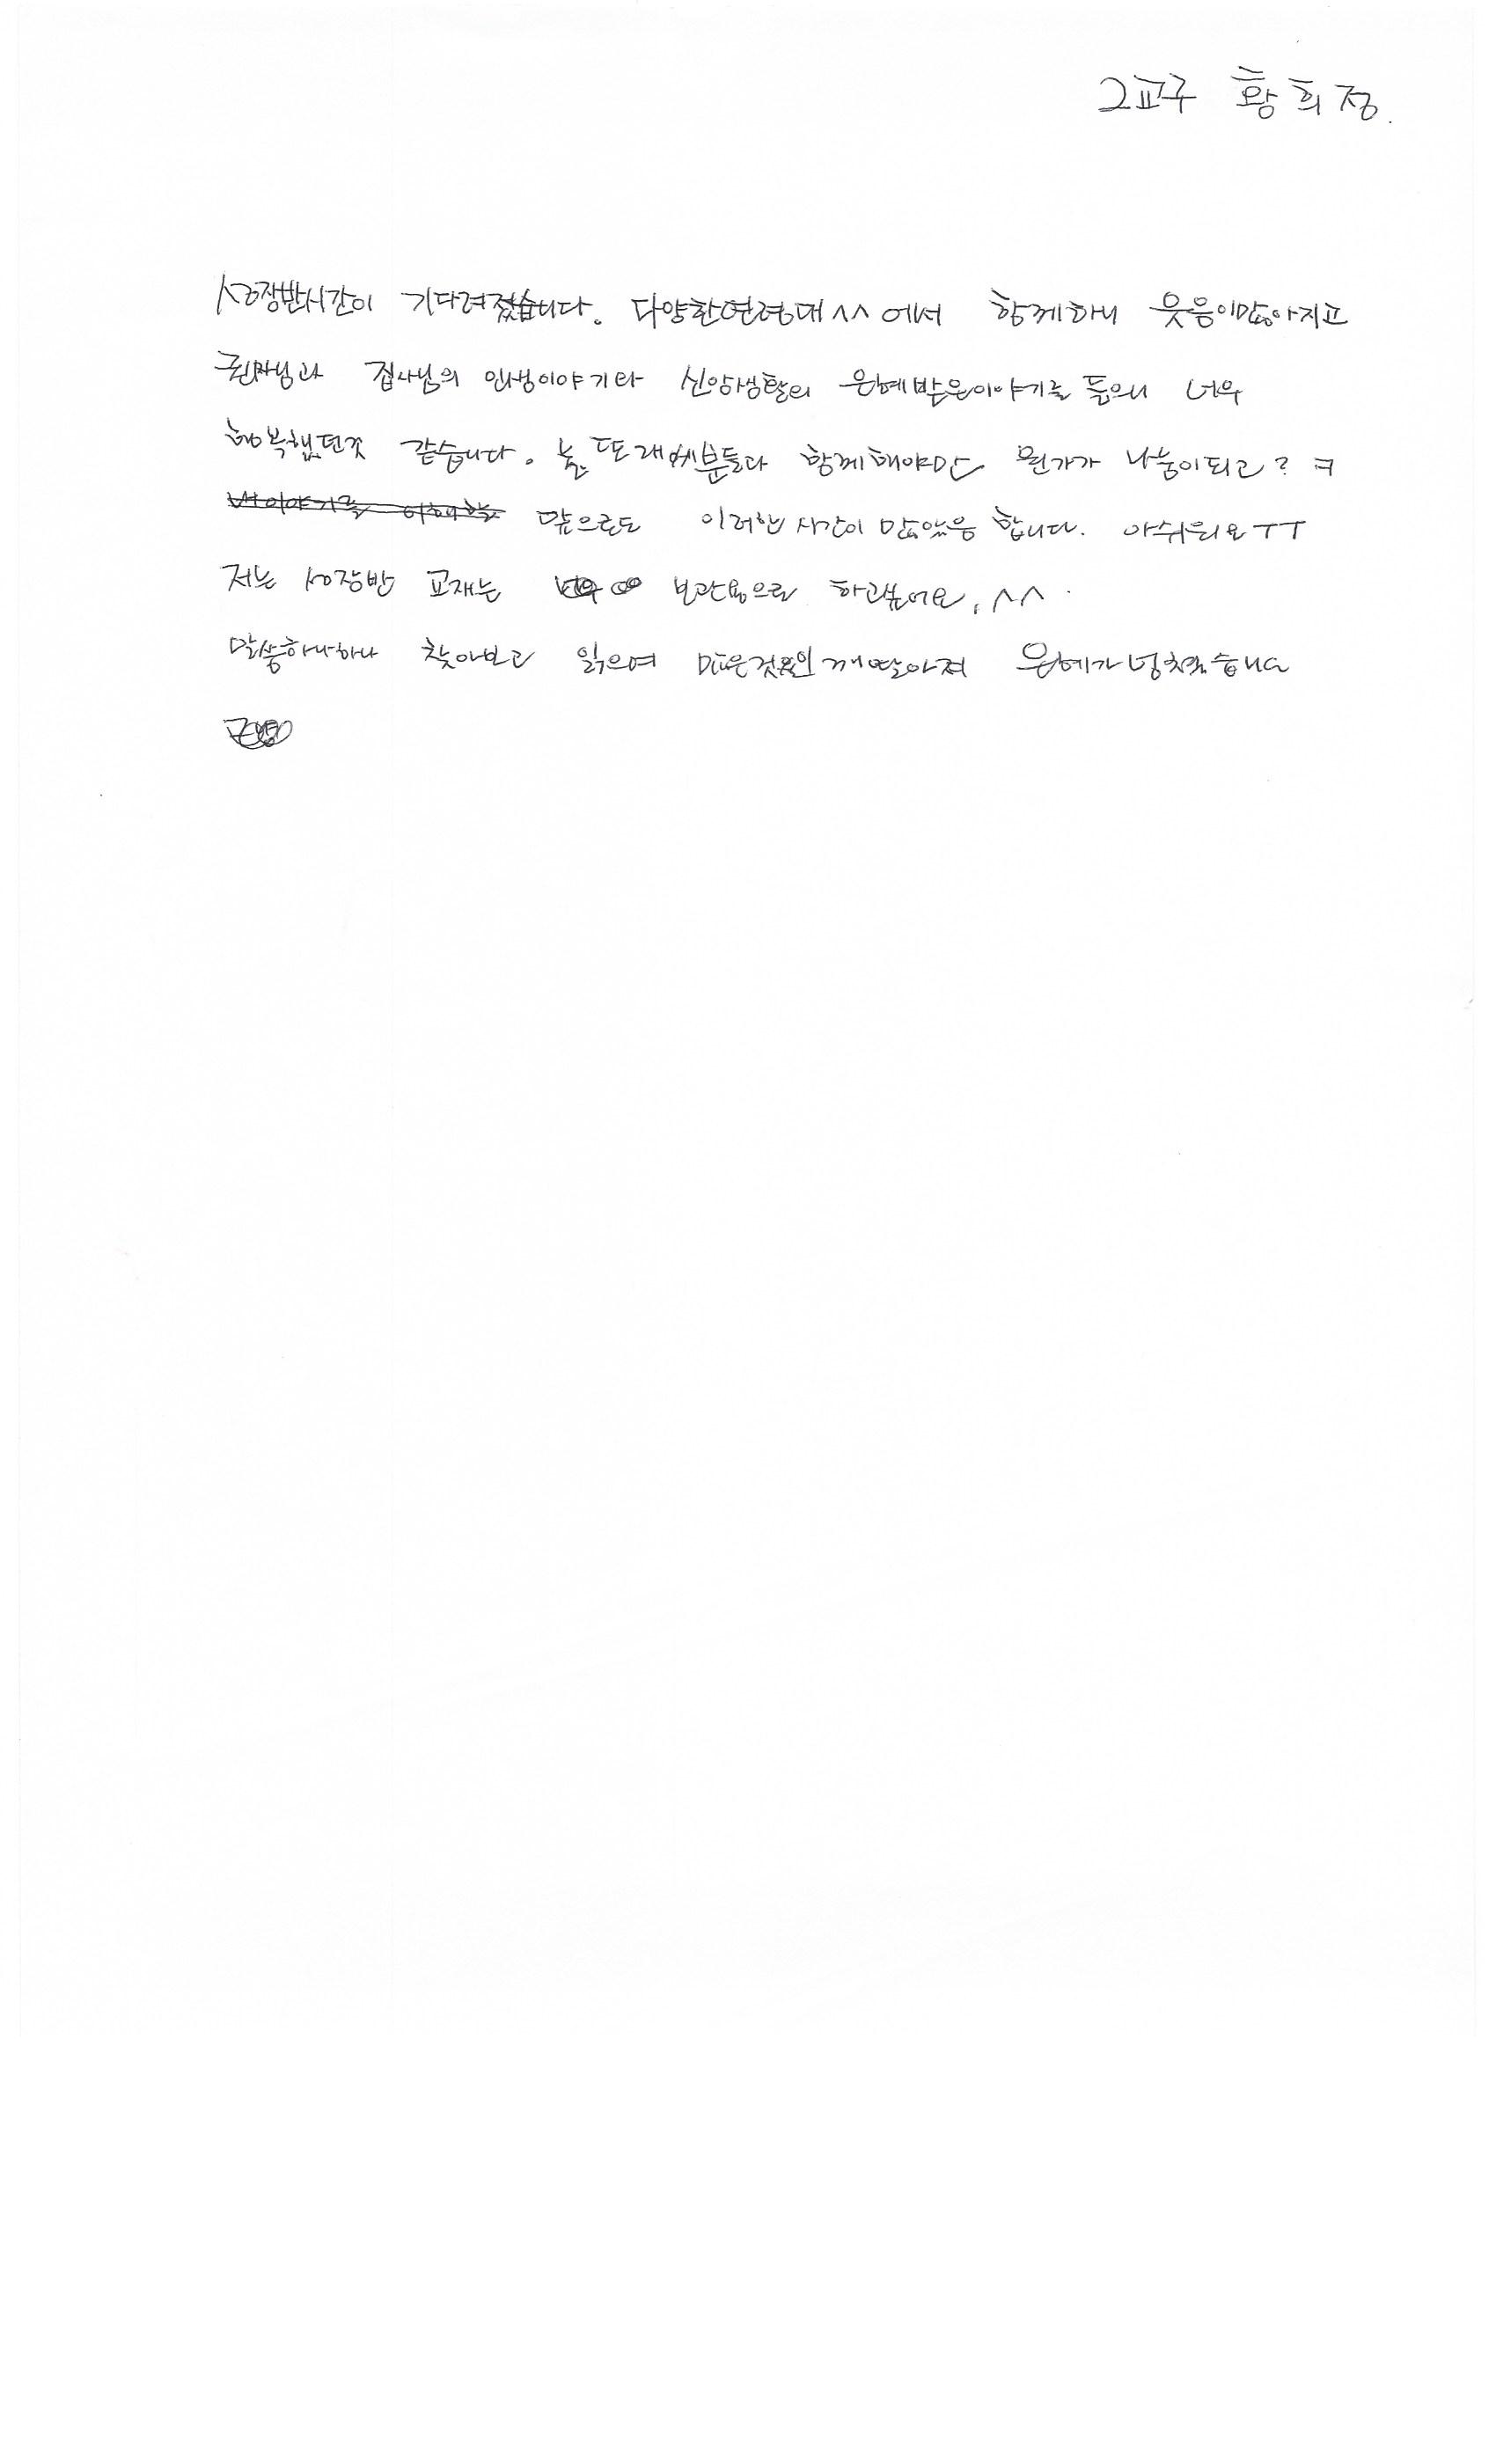 2교구 황희정.
성장반시간이 기다려졌습니다. 다양한연령대^^에서 함께하니 웃음이많아지고
권사님과 집사님의 인생이야기와 신앙생활의 은혜받은이야기를 들으니 너무
행복했던것 같습니다. 늘 또래에분들과 함께해야만 뭔가가 나눔이되고? ㅋ
앞으로도 이러한 시간이 많았음 합니다. 아쉬워요ㅜㅜ
저는 성장반 교재는 보관용으로 하고싶어요. ^^.
말씀하나하나 찾아보고 읽으며 깨달아져 은혜가넘쳤습니다